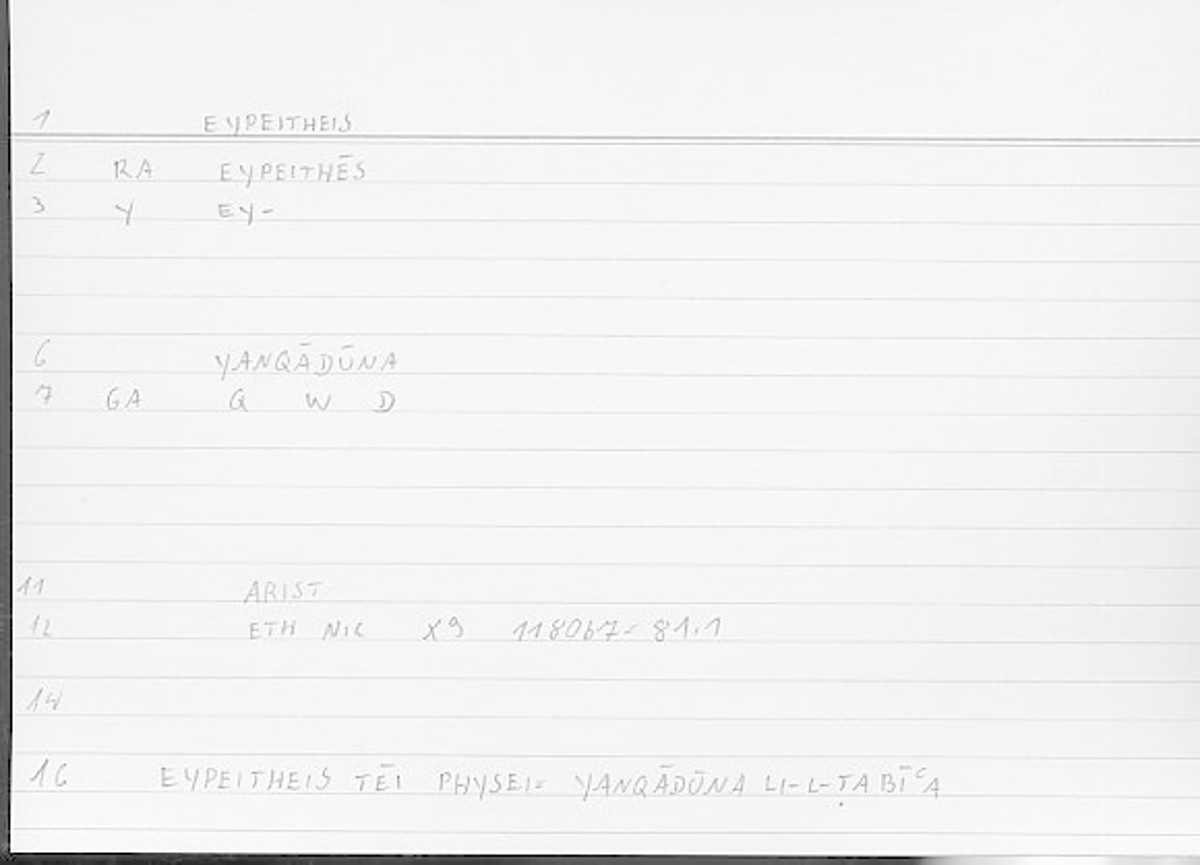 1 EYPEITHEIS
2 RA EYPEITHĒS
3 Y EY-
6 YANQĀDŪNA
7 GA Q W D
11 ARIST
12 ETH NIC X9 1180b7= 81.1
14
16 EYPEITHEIS TĒI PHYSEI= YANQĀDŪNA LI-L-ṬABĪʿA